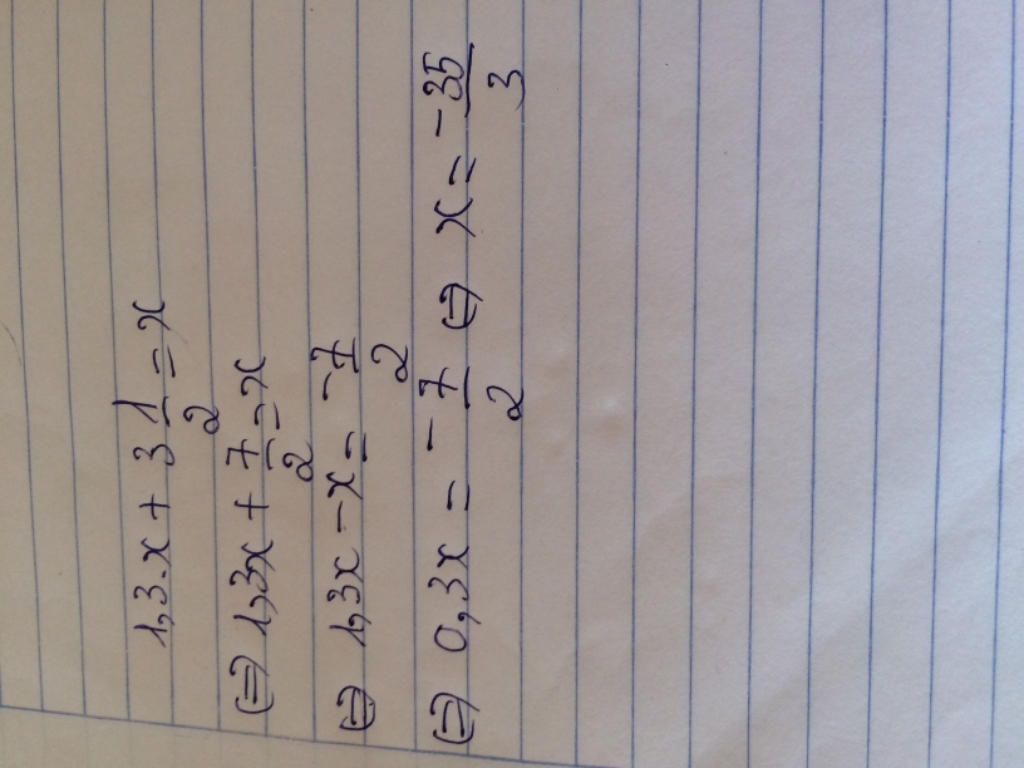 1,3.x + 3 1/2 = x
(=) 1,3x + 7/2 = x
(=) 1,3x - x = -7/2
(=) 0,3x = -7/2 (=) x = -35/3